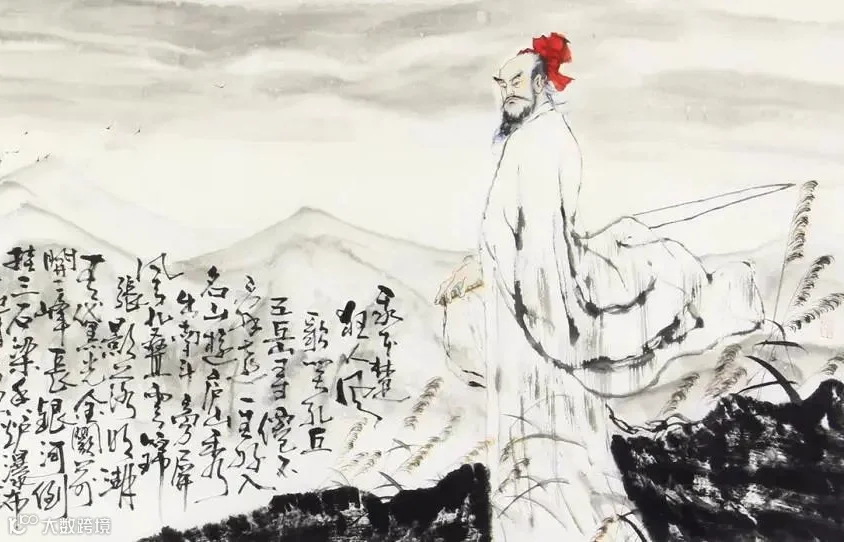 我本楚
狂人风
歌笑孔丘
五岳寻仙不
辞远一生好入
名山游庐山秀
出南斗旁屏
风九叠雲锦
張影落明湖
青黛光金闕前
開二峰長银河倒
挂三石梁香炉瀑布
大数跨境